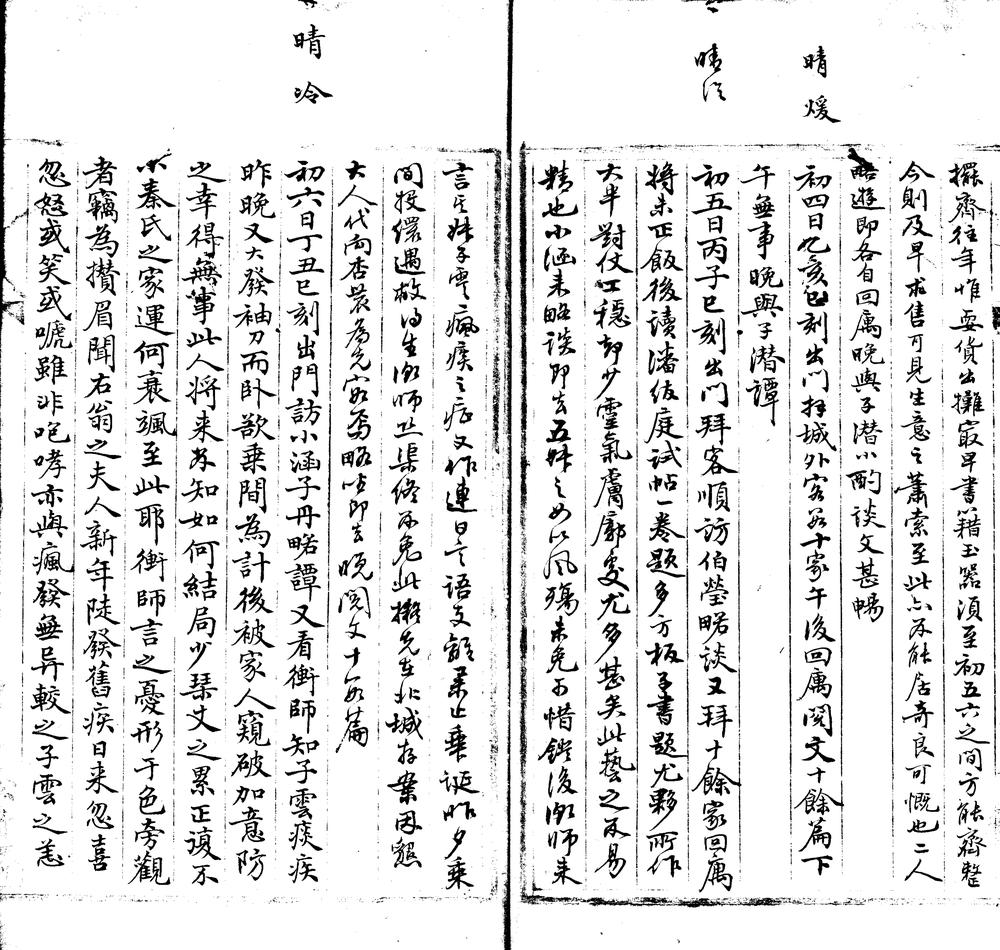 擺齊往年惟耍貨出攤寂早書籍玉器須至初五六之間方能齊整
今則及早求售可見生意之蕭索至此亦不能居奇良可慨也二人
略遊即各自回寓晚與子潜小酌談文甚暢
晴煖
初四日乙亥巳刻出門拜城外客不十家午後回寓閱文十餘篇下
午無事晚與子潜譚
晴
初五日丙子巳刻出門拜客順訪伯瑩略談又拜十餘家回寓
將未正飯後讀潘紱庭試帖一卷題多方板子書題尤夥所作
大半對仗工穩却少靈氣膚廓處尤多甚矣此藝之不易
精也小涵来略談即去五妹之女以風殤未免可惜鐙後濒師来
言其妹子雲瘋疾之症又作連日言語支離舉止乖誕昨夕乘
間投繯遇救得生濒師
大人代向杏農為先容焉略坐即去晚閱文十數篇
晴冷
初六日丁丑巳刻出門訪小涵子丹略譚又看衡師知子雲痰疾
昨晚又大發袖刀而卧欲乘間為計後被家人窺破加意防
之幸得無事此人將来不知如何結局少琹丈之累正復不
小秦氏之家運何衰颯至此耶衡師言之憂形于色旁觀
者竊為攢眉聞右翁之夫人新年陡發舊疾日来忽喜
忽怒或笑或唬雖非咆哮亦與瘋發無异較之子雲之恙